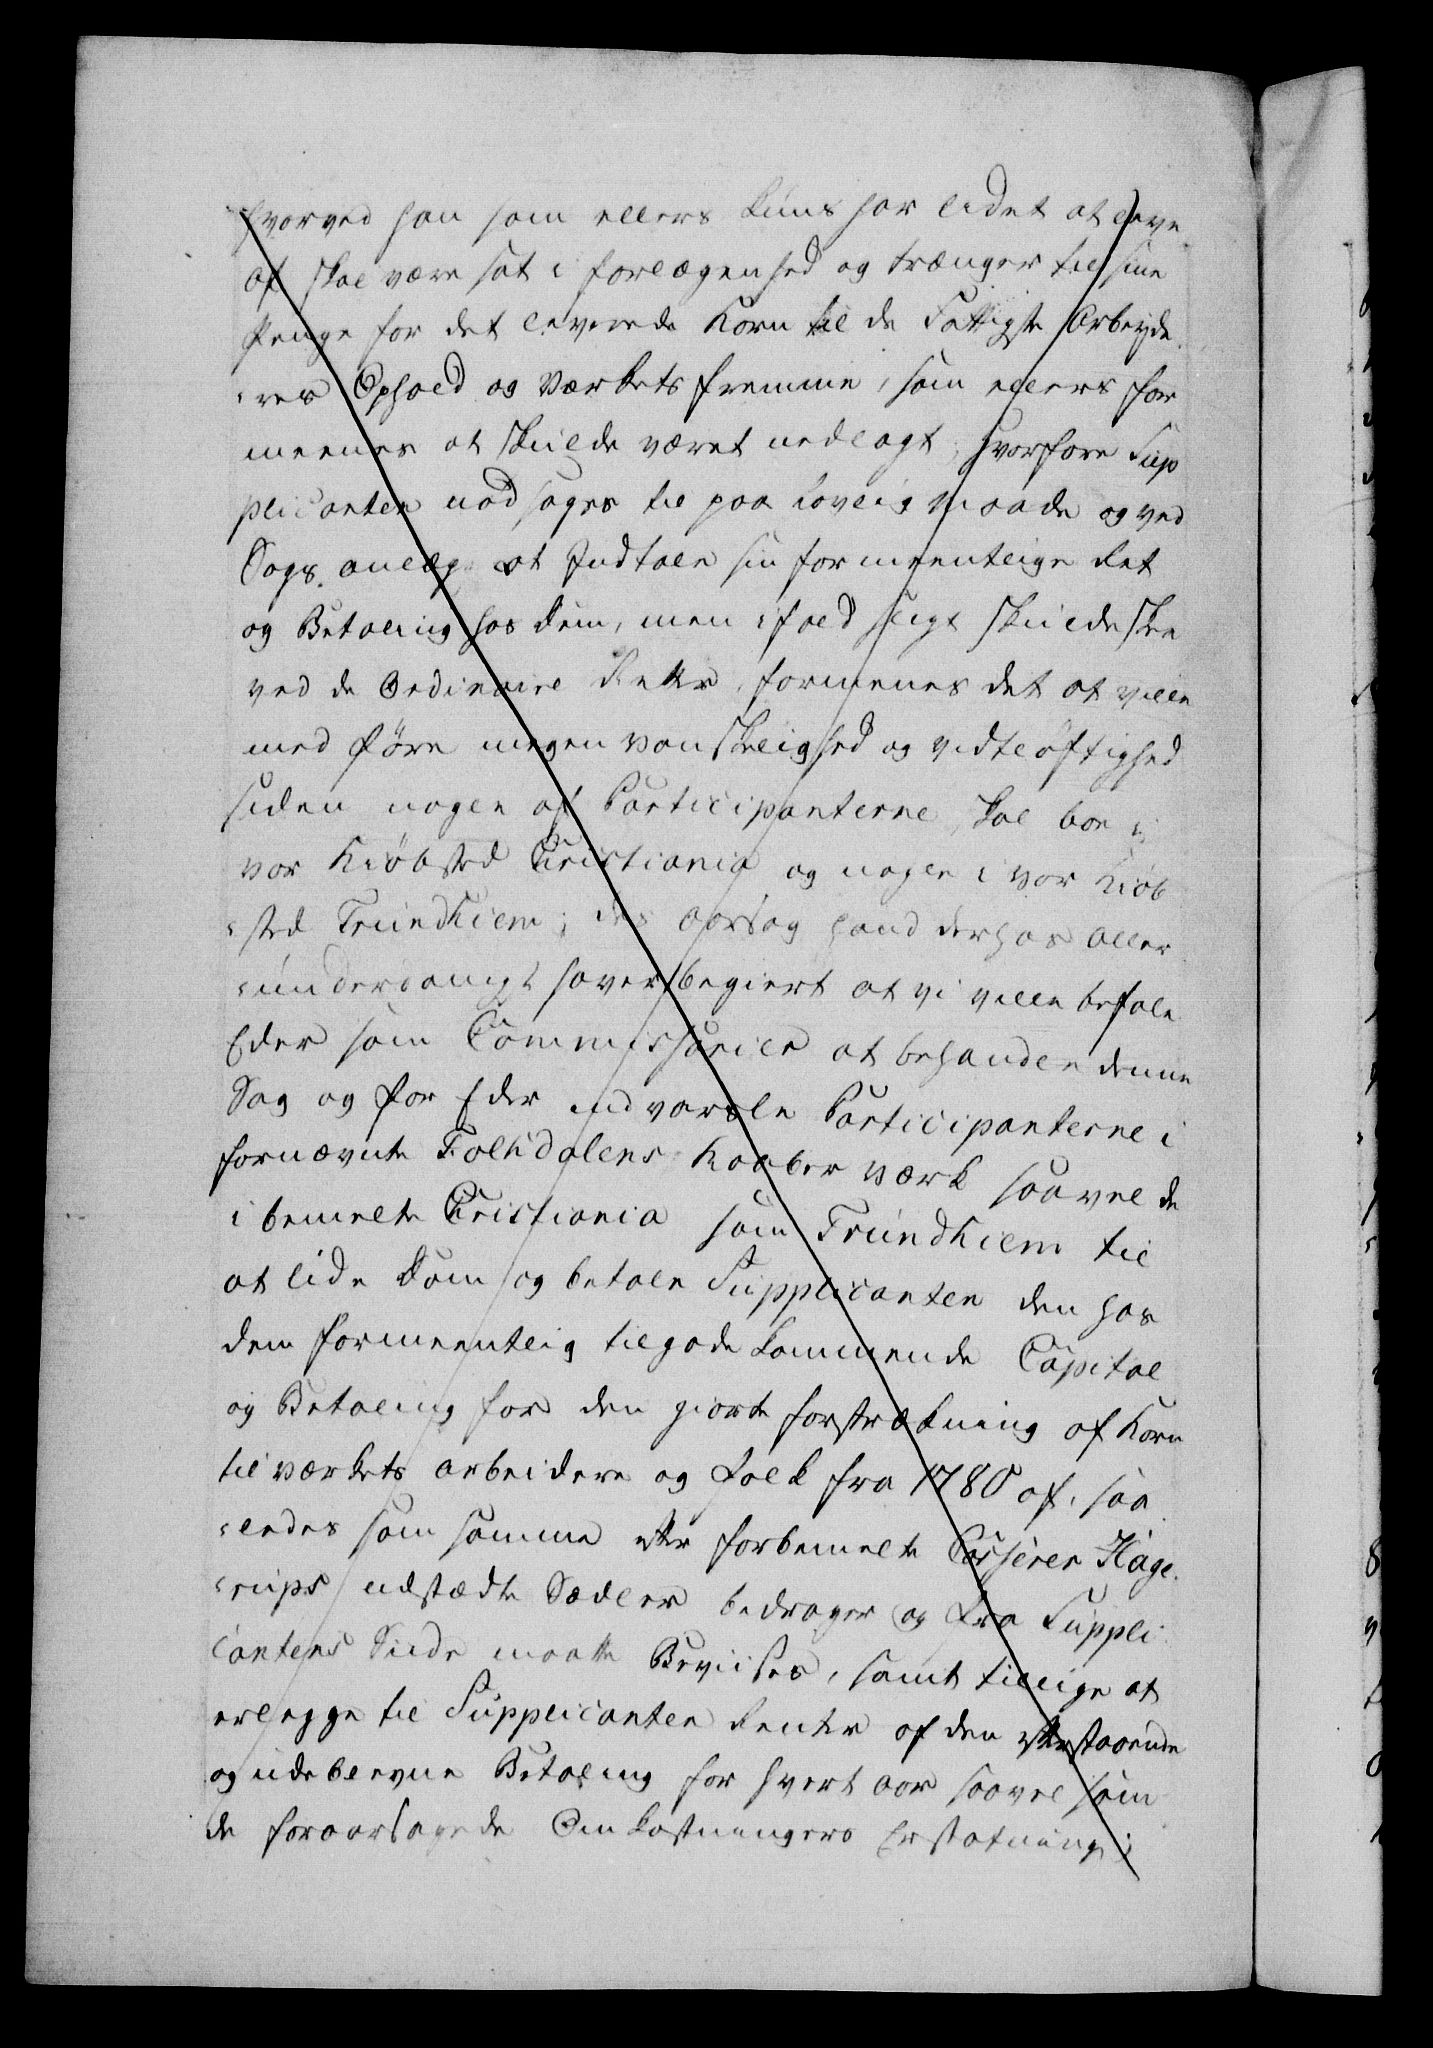 hvorved han som ellers kuns har lidet at leve
af skal være sat i forlægenhed og trænger til sine
Penge for det leverede Korn til de Fattigste Arbeyde
-res Ophold og Værkets fremme, som ellers for
meenes at skulde været nedlagt, hvorfore Sup
plicanten nødsages til paa lovlig Maade og ved
Sags anlæg at Indtale sin formeentlige Ret
og Betaling hos dem, men ifald sligt skulde skee
ved de Ordinaire Retter, formenes det at ville
med føre megen vanskelighed og vidtløftighed
siden nogen af Participanterne skal boe i
vor Kiøbsted Cristiania og nogen i vor Kiøb
-sted Trundhiem; des aarsag hand derhos aller
-underdanigst haver begiert at vi ville befale
Eder som Commissarier at behandle denne
Sag og for Eder indvarsle Participanterne i
fornævnte Folhdalens Kaaber værk saavel de
i bemelte Cristiania som Trundhiem til
at lide Dom og betale Supplicanten den hos
dem formeentlig tilgode kommende Capital
og Betaling for den giorte forstrækning af Korn
til værkets arbeidere og Folk fra 1780 af, saa
-ledes som samme efter forbemelte Casserer Hage
-rups udstædte Sedler bedrager og fra Suppli
cantens Siide maatte Beviises, samt tillige at
erlegge til Supplicanten Renter af den efterstaaende
og udeblevne Betaling for hvert aar saavel som
de foraarsagede Omkostningers Erstatning;